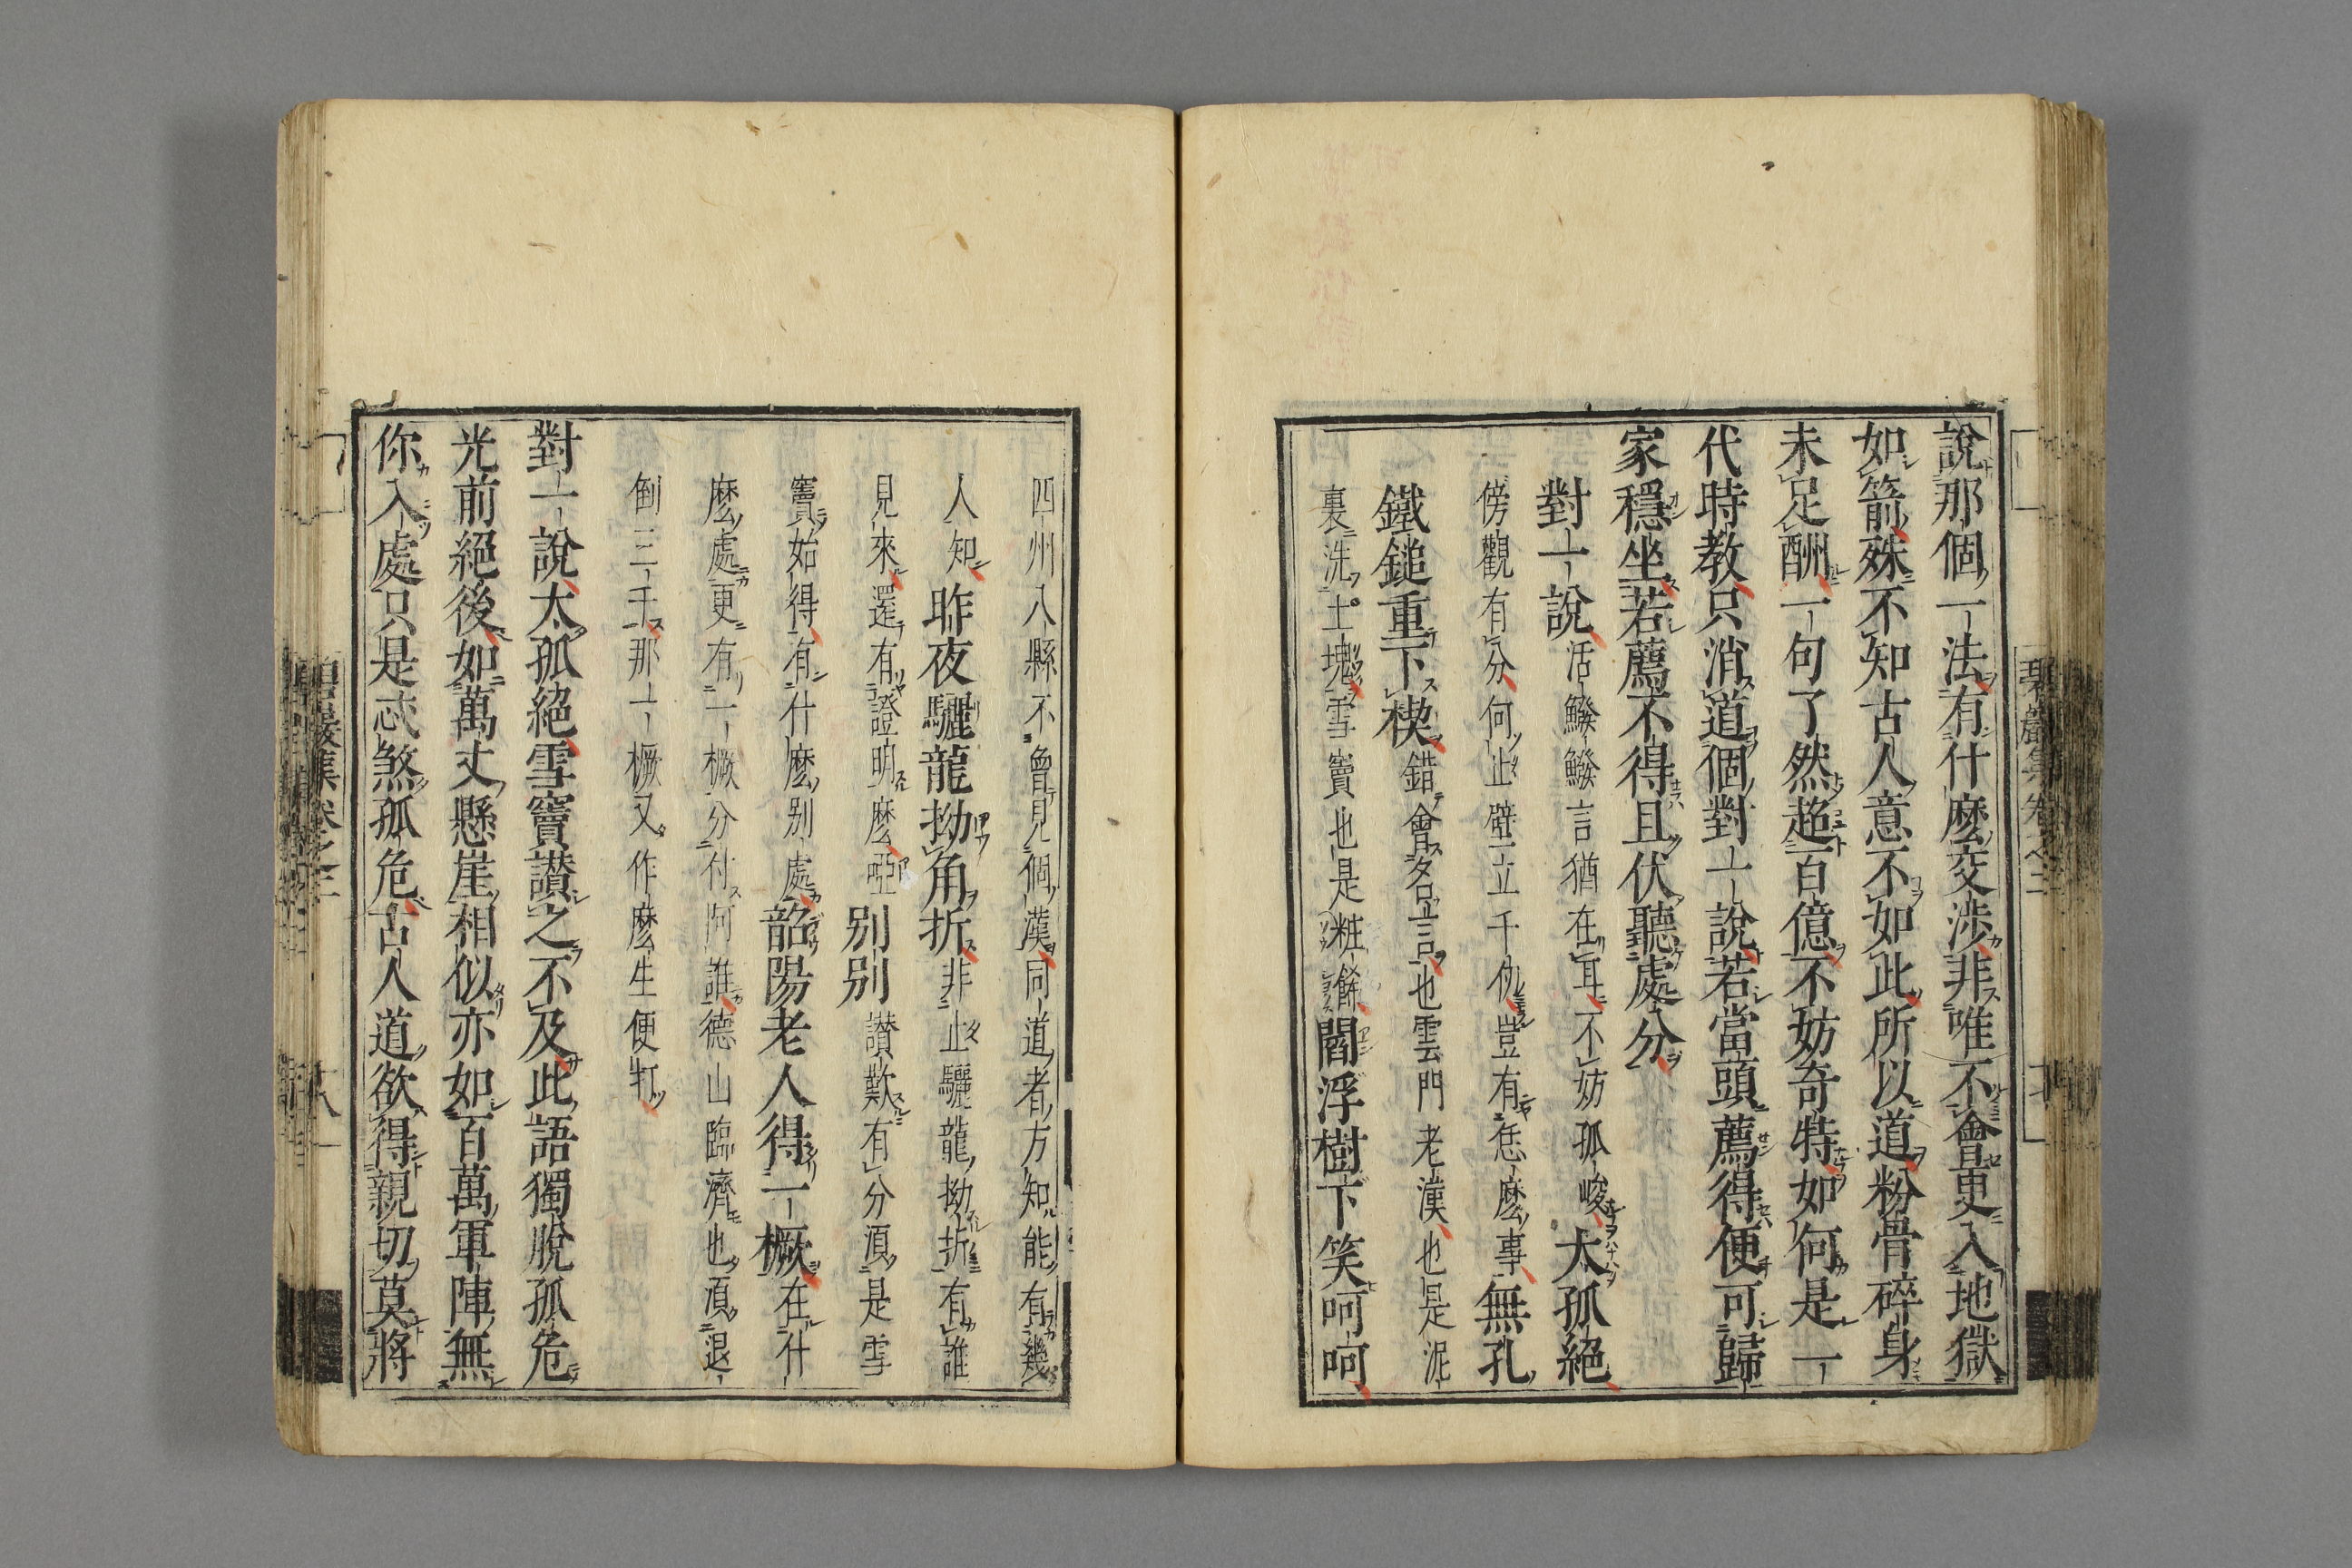 說那個一法有什麼交涉非唯不會更入地獄
如箭殊不知古人意不如此所以道粉骨碎身
未足酬一句了然超百億不妨奇特如何是一
代時教只消道個對一說若當頭薦得便可歸
家穩坐若薦不得且伏聽處分
對一說活鱍鱍言猶在耳不妨孤峻太孤絕
傍觀有分何止壁立千仞豈有恁麼事無孔
鐵鎚重下楔錯會名言也雲門老漢也是泥
裏洗土塊雪竇也是粧餙閻浮樹下笑呵呵
四州八縣不曾見個漢同道者方知能有幾
人知昨夜驪龍拗角折非止驪龍拗折有誰
見來還有證明麼啞別別讃歎有分湏是雪
竇始得有什麼别處韶陽老人得一橛在什
麼處更有一橛分付阿誰德山臨濟也湏退
倒三千那一橛又作麼生便打
對一說太孤絕雪竇讃之不及此語獨脫孤危
光前絕後如萬丈懸崖相似亦如百萬軍陣無
你入處只是忒煞孤危古人道欲得親切莫將